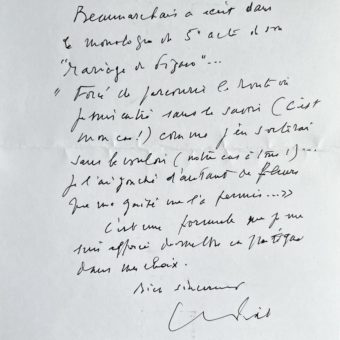 Beaumarchais a écrit dans
le monologue du 5e acte de son
"Mariage de Figaro"...
"Forcé de parcourir la route où
je suis entré sans le savoir (c'est
mon cas!) comme j'en sortirai
sans le vouloir (notre cas à tous!)...
je l'ai jonchée d'autant de fleurs
que ma gaîté me l'a permis..."
C'est une formule que je me
suis efforcé de mettre en pratique
dans mes choix.
Bien sincèrement